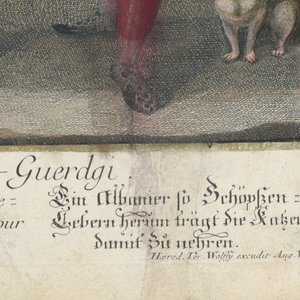 - Guerdgi.
e= Ein Albaneer so Schöpßen=
our Lebern herum trägt die Katzen
damit Zu nehren.
Hæred. Ier. Wolffy excudit Aug. V